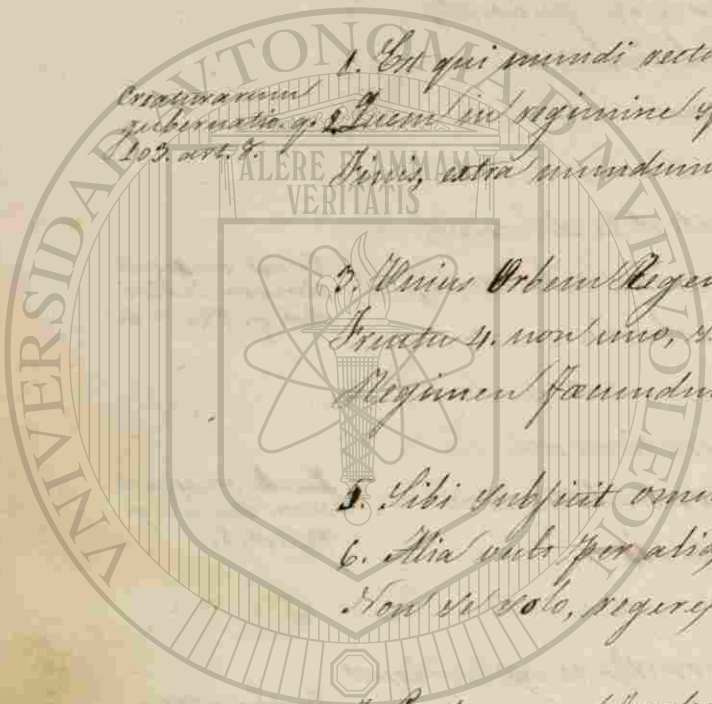 1. Est qui mundi recto
Creaturarum
gubernatio. q.
103. art. 8.
2. Quem in regimine sp
Finis, extra mundum
3. Unius Orbem Regen
Fructu 4. non uno, s
Regimen fæcundum
5. Sibi subjicit omn
6. Alia vult per aliq
Non se solo, regere
UNIVERSIDAD AUTONOMA DE NUEVO LEON
ALERE FLAMMAM
VERITATIS